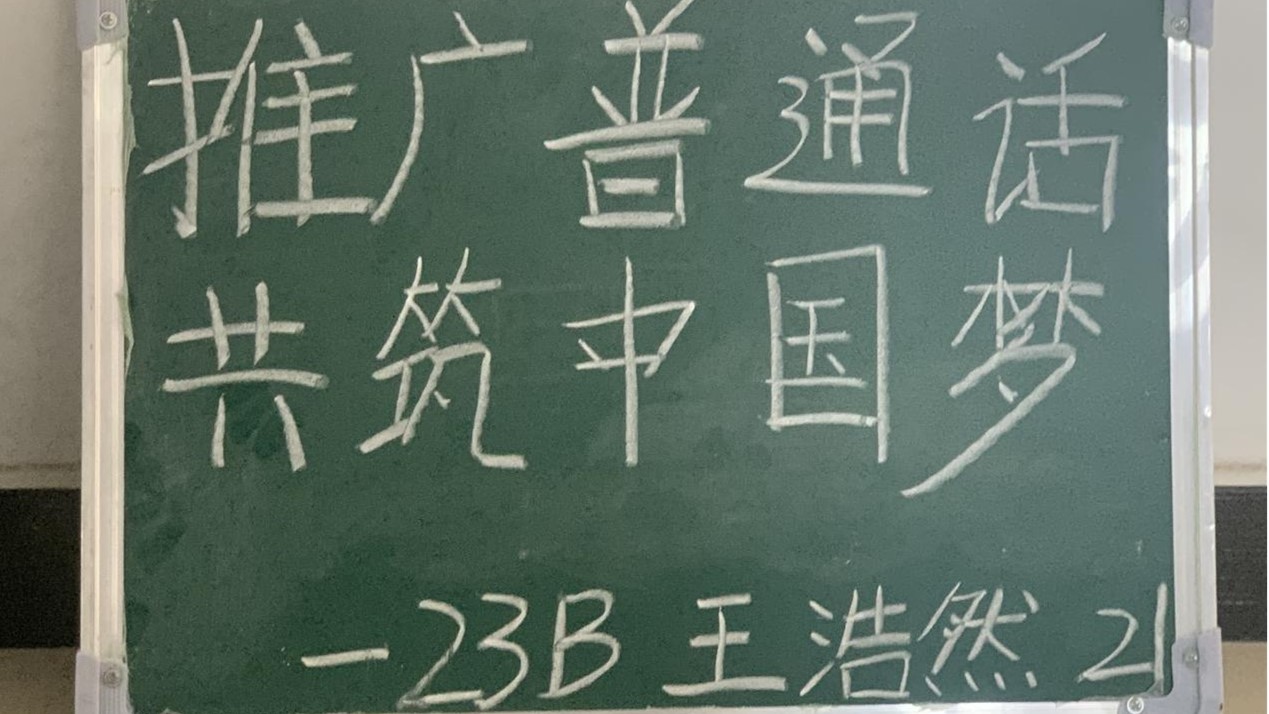 推广普通话
共筑中国梦
—23B 王浩然 21